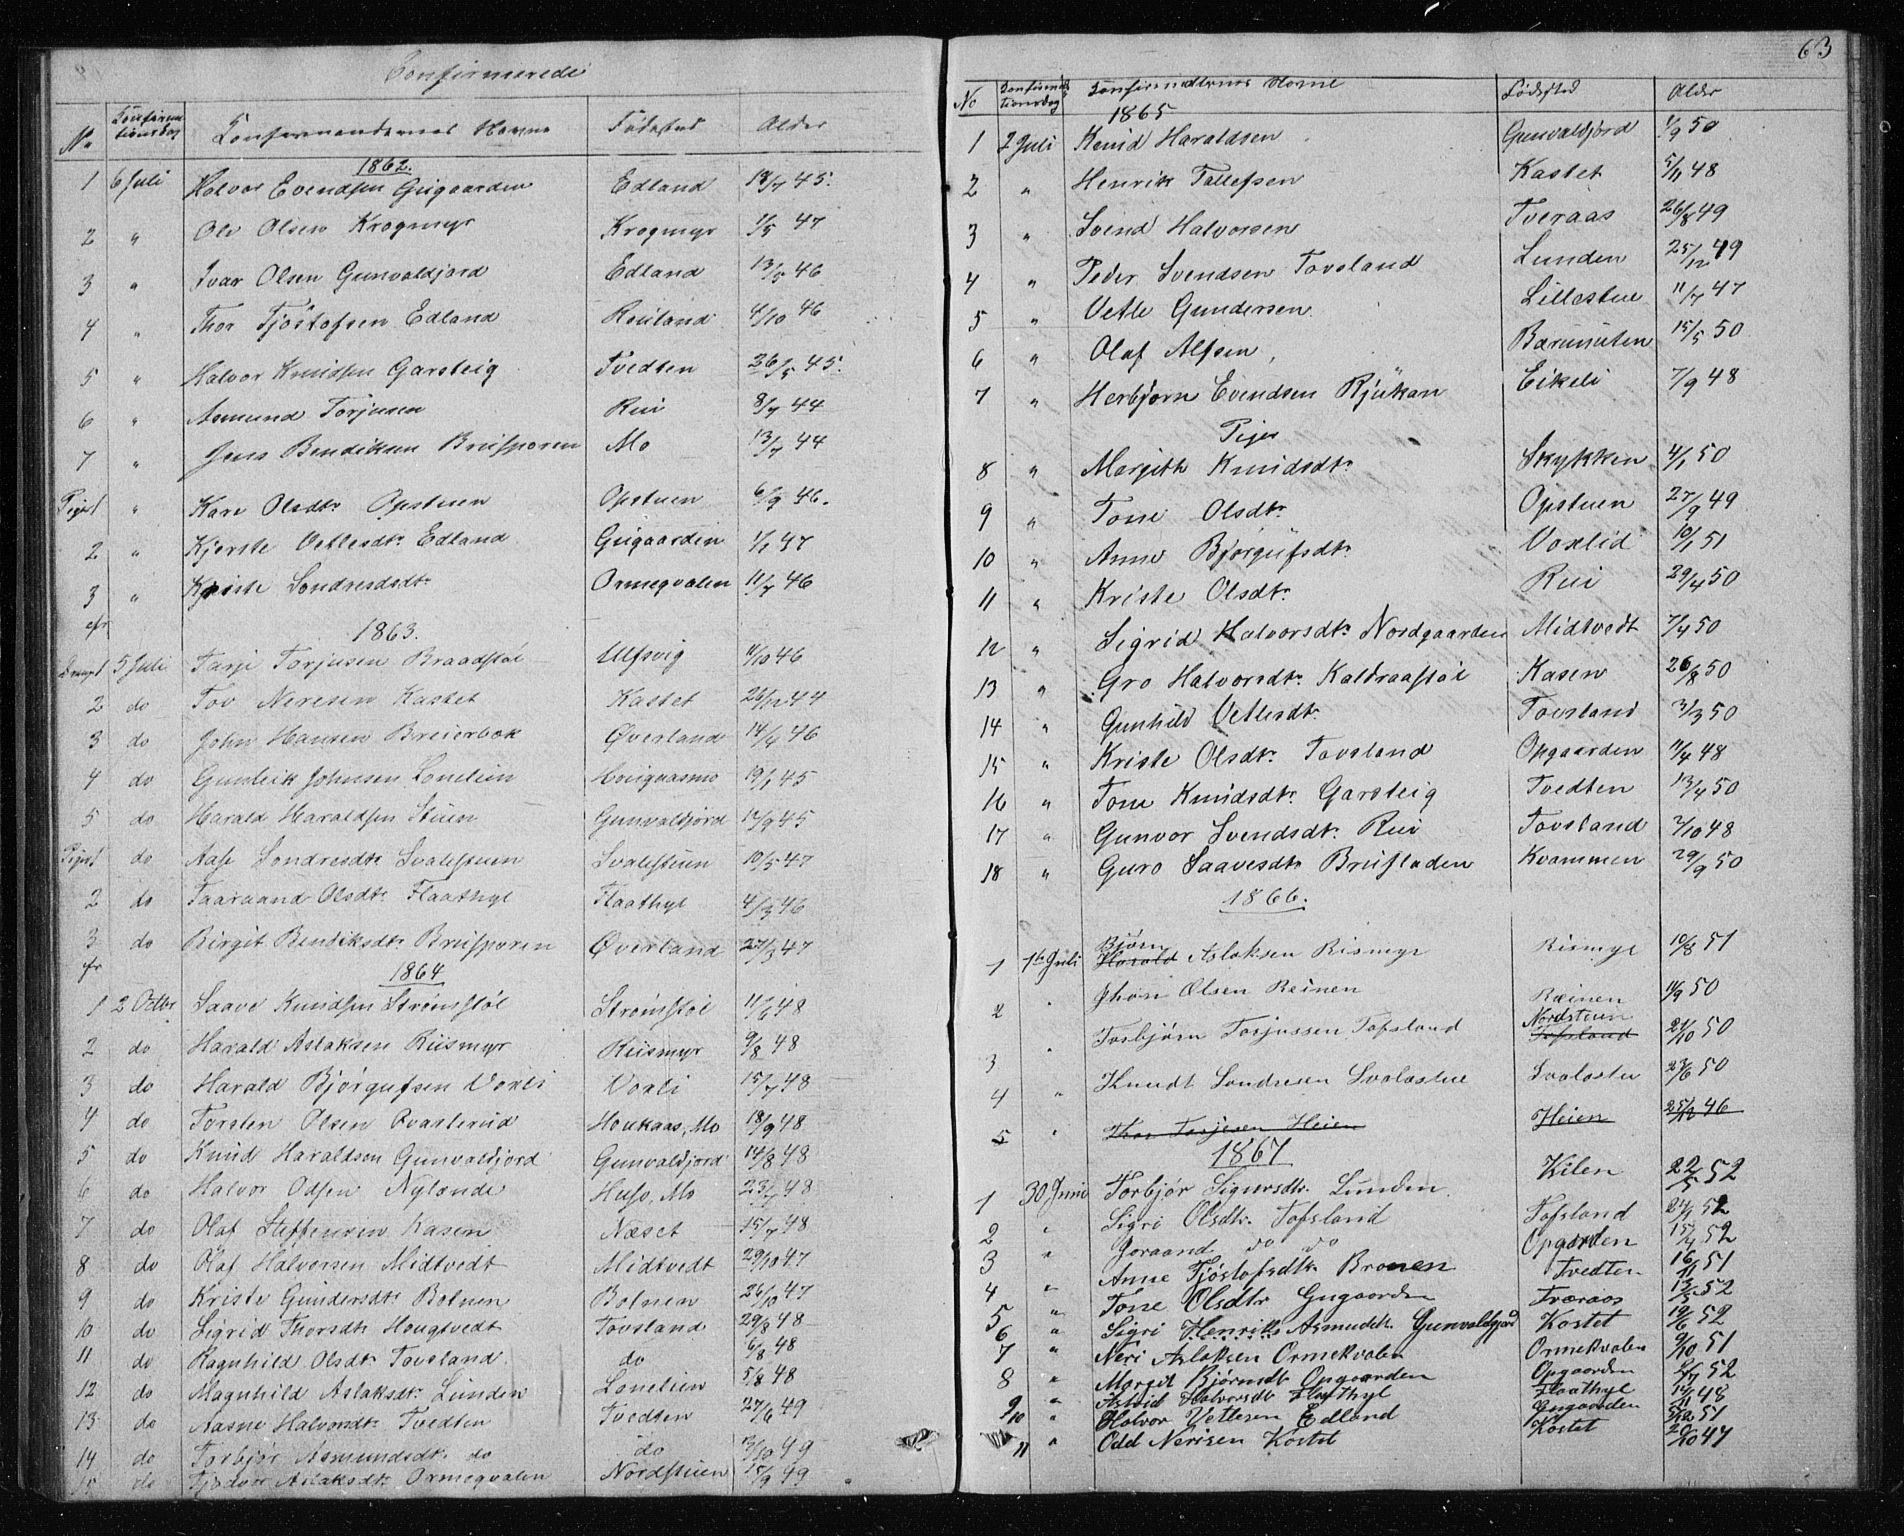 Confirmerede
No Confirmationsdag Confirmandernes Navne Fødested Alder
1862.
1 6 Juli Halvor Evendsen Gugaarden Edland 18/7 45.
2 " Ole Olsen Krogmyr Krogmyr 1/5 47
3 " Ivar Olsen Gunvaldjord Edland 13/5 46
4 " Thor Tjöstofsen Edland Rauland 4/10 46
5 " Halvor Knudsen Garsteig Tvedten 26/5 45.
6 " Asmund Torjusen Rui 8/7 44
7 " Jens Bendiksen Brufsporen Mo 13/7 44
Piger 1 " Kari Olsdtr Opstuen Opstuen 6/9 46.
2 " Kjerste Vetlesdtr Edland Gugaarden 1/1 47
3 " Kjriste Sondresdtr Ormeqvalen 11/7 46
1863.
Drenge 1 5 Juli Tarje Torjusen Braadstöl Ulfsvig 11/10 46
2 do Tov Neresen Kastet Kastet 26/12 44
3 do John Hansen Breierbæk Øverland 14/4 46
4 do Gunleik Johnsen Lonelien 19/1 45
5 do Harald Haraldsen Stuen Gunvaldjord 12/9 45
Piger 1 do Aase Sondresdtr Svalestuen Svalestuen 10/5 47
2 do Taaraand Olsdtr Flaathyl Flaathyl 4/3 46
3 do Birgit Bendiksdtr Brufsporen Øverland 27/3 47
1864
1 2 Octbr Saave Knudsen Strømstøl Strømstøl 11/6 48
2 do Harald Aslaksen Riismyr Riismyr 9/8 48
3 do Harald Bjørgufsen Voxli Voxli 15/7 48
4 do Torsten Olsen Qvasterud Houkaas, Mo 18/9 48
5 do Knud Haraldsen Gunvaldjord Gunvaldjord 14/8 48
6 do Halvor Odsen Nylænde Huso, Mo 23/7 48
7 do Olaf Steffensen Kasen Næset 15/7 48
8 do Olaf Halvorsen Midtvedt Midtvedt 29/10 47
9 do Kriste Gundersdtr Bolnen Bolnen 26/10 47
10 do Sigrid Thorsdtr Hougtvedt Tovsland 29/8 48
11 do Ragnhild Olsdtr Tovsland do 6/8 48
12 do Magnhild Aslaksdtr Lunden Lonelien 5/8 48
13 do Aasne Halvordtr Tvedten Tvedten 27/6 49
14 do Torbjør Asmundsdtr do do 13/10 49
15 do Tjodvor Aslaksdtr Ormeqvalen Nordstuen 15/9 49
63
No Confirmationsdag Konfirmandternes Navne Fødested Alder
1865
1 2 Juli Knud Haraldsen Gunvaldjord 1/9 50
2 " Henrik Tallefsen Kastet 5/11 48
3 " Svend Halvorsen Tveraas 26/8 49
4 " Peder Svendsen Tovsland Lunden 25/12 49
5 " Vetle Gundersen Lillestue 11/7 47
6 " Olaf Alfsen Barunuten 15/5 50
7 " Herbjørn Evendsen Rjukan Eikeli 7/9 48
Piger
8 " Margith Knudsdtr Skykken 4/1 50
9 " Tone Olsdtr Opstuen 27/9 49
10 " Anne Bjørgufsdtr Voxlid 10/1 51
11 " Kriste Olsdtr Rui 29/4 50
12 " Sigrid Halvorsdtr Nordgaarden Midtvedt 7/4 50
13 " Gro Halvorsdtr Kaldraastøl Kasen 26/8 50
14 " Gunhild Vetlesdtr Tovsland 3/3 50
15 " Kriste Olsdtr Tovsland Opgaarden 11/4 48
16 " Tone Knudsdtr Garsteig Tvedten 13/4 50
17 " Gunvor Svendsdtr Rui Tovsland 2/10 48
18 " Guro Saavesdtr Brufladen Kvammen 29/9 50
1866.
Bjørn
1 1te Juli Harald Aslaksen Rismyr Rismyr 10/8 51
2 " Thor Olsen Reinen Ræinen 11/9 50
Nordstuen
3 " Torbjørn Torjussen Tofsland Tofsland 21/10 50
4 " Knudt Sondresen Svalastue Svalastu 23/6 50
5 " Thor Torjesen Heien Heien 25/12 46
1867
1 30 Juni Torbjør Sigursdtr Lunden Kilen 22/5 52
2 " Sigri Olsdtr Tofsland Tofsland 27/1 52
3 " Joraand do do Opgarden 15/4 52
4 " Anne Tjöstofsdtr Bronen Tvedten 16/11 51
5 " Tone Olsdtr Gugaarden Træraas 13/5 52
6 " Sigri Henriks Asmundtr Gunvaldjord Kostet 19/6 52
7 " Neri Aslaksen Ormekvalen Ormekvalen 9/10 51
8 " Margit Bjørnsdtr Opgaarden Opgaarden 2/7 52
9 " Astrid Halvorsdtr Flathyl Flaathyl 19/11 48
10 " Halvor Vetlesen Edland Gugaarden 5/12 51
11 " Odd Nerisen Kostet Kostet 20/10 47